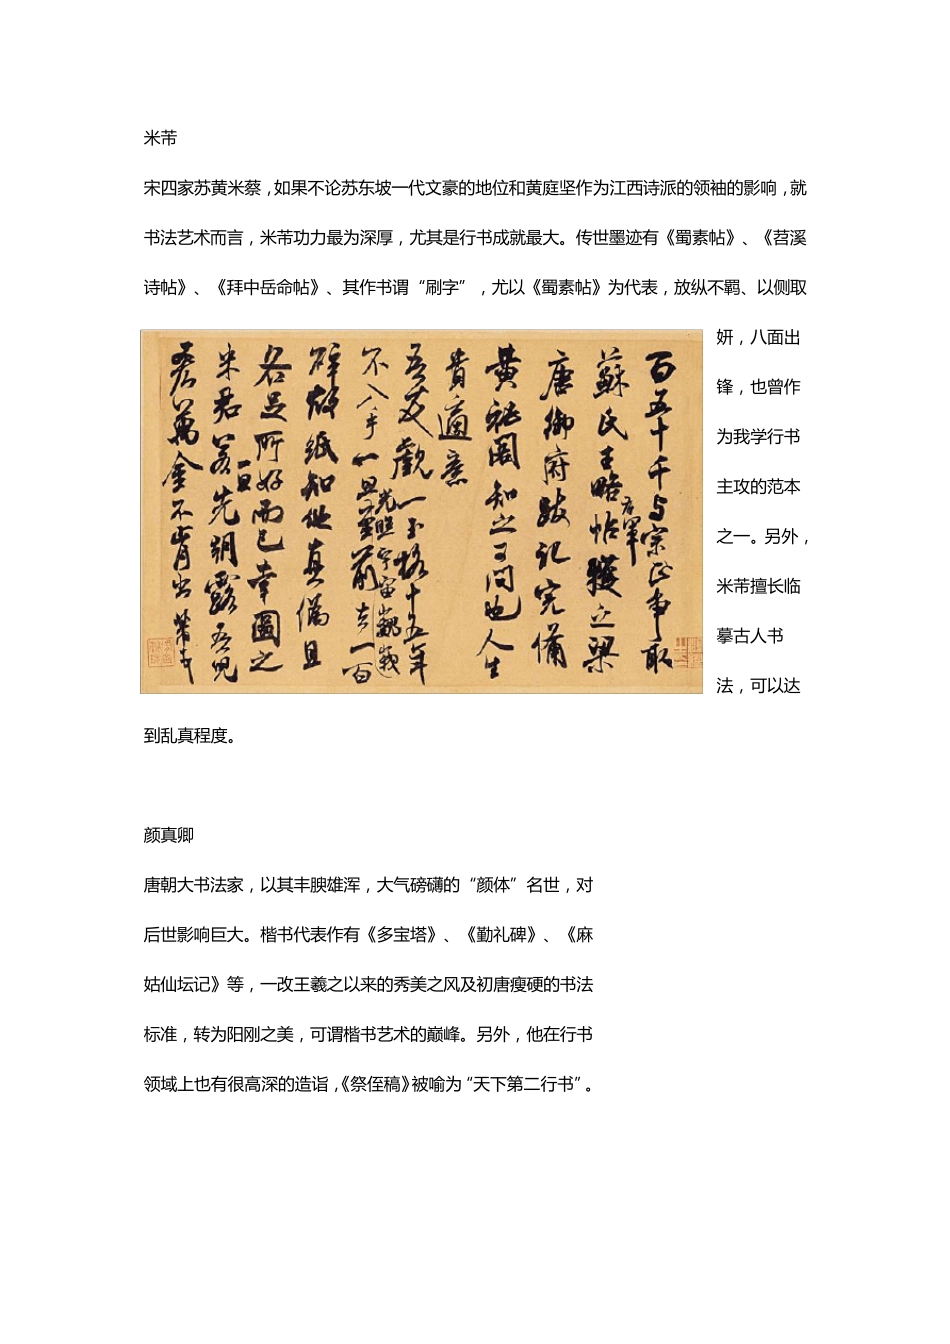 米芾
宋四家苏黄米蔡，如果不论苏东坡一代文豪的地位和黄庭坚作为江西诗派的领袖的影响，就
书法艺术而言，米芾功力最为深厚，尤其是行书成就最大。传世墨迹有《蜀素帖》、《苕溪
诗帖》、《拜中岳命帖》、其作书谓“刷字”，尤以《蜀素帖》为代表，放纵不羁、以侧取
妍，八面出
锋，也曾作
为我学行书
主攻的范本
之一。另外，
米芾擅长临
摹古人书
法，可以达
到乱真程度。
百五十千与宗正争取
蘇氏王略帖右軍獲之梁
唐御府跋記完備
黄祕閣知之可問也人生
貴適意
吾友觀一玉格十五年
不入手一旦光照宇宙巍峩至前去一百
碎故紙知他真偽且
各足所好而已幸圖之
米君若一旦先朝露吾児
吝萬金不肯出芾頓首
颜真卿
唐朝大书法家，以其丰腴雄浑，大气磅礴的“颜体”名世，对
后世影响巨大。楷书代表作有《多宝塔》、《勤礼碑》、《麻
姑仙坛记》等，一改王羲之以来的秀美之风及初唐瘦硬的书法
标准，转为阳刚之美，可谓楷书艺术的巅峰。另外，他在行书
领域上也有很高深的造诣，《祭侄稿》被喻为“天下第二行书”。